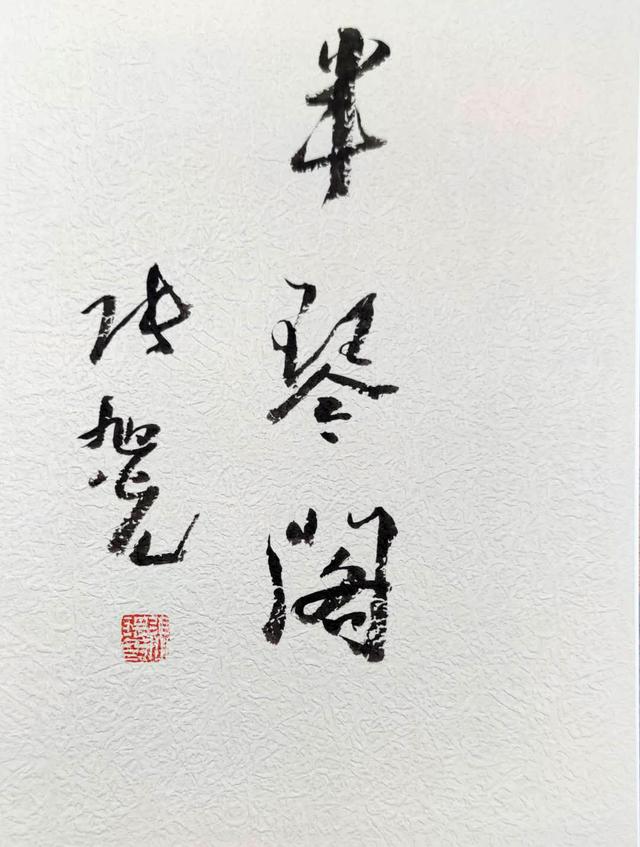 半琴阁
张旭光